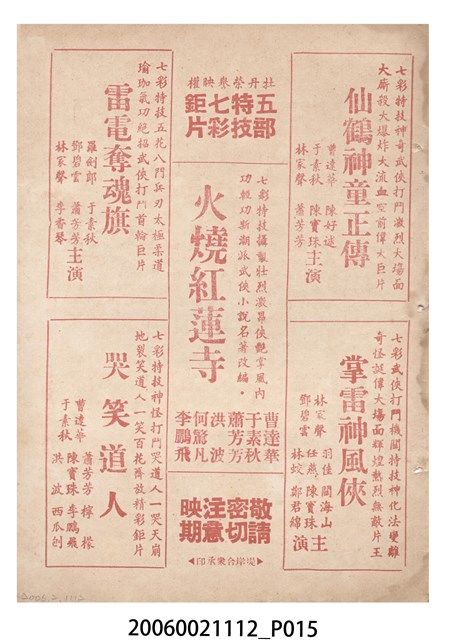 牡丹榮譽映權
五部
特技
七彩
鉅片
七彩特技神奇武俠打鬥激烈大場面
大廝殺大爆炸大流血空前偉大巨片
仙鶴神童正傳
曹達華 陳好逑
于素秋 陳寶珠
林家聲 蕭芳芳
主演
七彩特技五花八門兵刃太極柔道
瑜珈氣功絕招武俠打鬥首輪巨片
雷電奪魂旗
羅劍郎 于素秋
鄧碧雲 蕭芳芳
林家聲 李香琴
主演
七彩特技攝製壯烈激昂俠艷掌風內
功輕功新潮派武俠小說名著改編。
火燒紅蓮寺
曹達華
于素秋
蕭芳芳
洪波
何驚凡
李鵬飛
七彩武俠打鬥機關特技神化法變離
奇怪誕偉大場面輝煌熱烈無敵片王
掌雷神風俠
林家聲 羽佳 閻海山
鄧碧雲 任燕 陳寶珠
林蛟 鄭君綿
主演
七彩特技神怪打鬥哭道人一哭天崩
地裂笑道人一笑百花齊放精彩鉅片
哭笑道人
曹達華 蕭芳芳 檸檬
于素秋 陳寶珠 李鵬飛
洪波 西瓜刨
敬請
密切
注意
映期
◀堤岸合衆承印▶
2006.2.1112
20060021112_P015